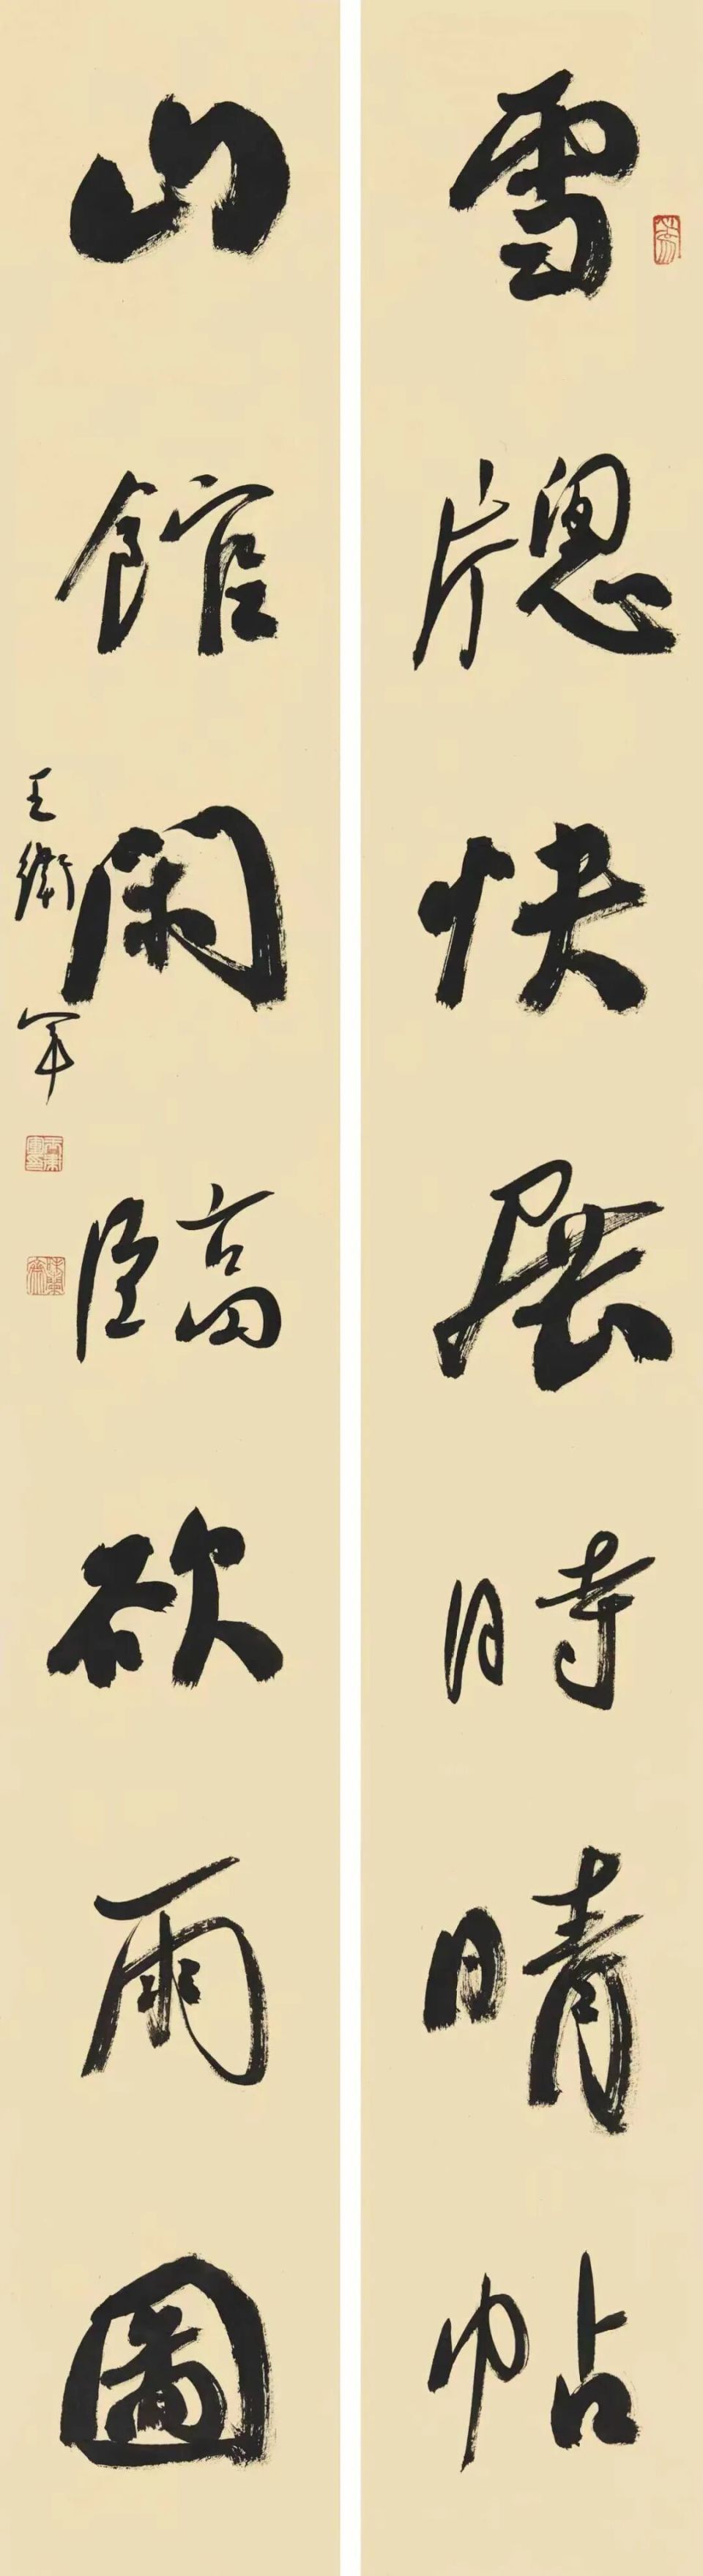 雪牎快展時晴帖
山館閑臨欲雨圖
王衛軍